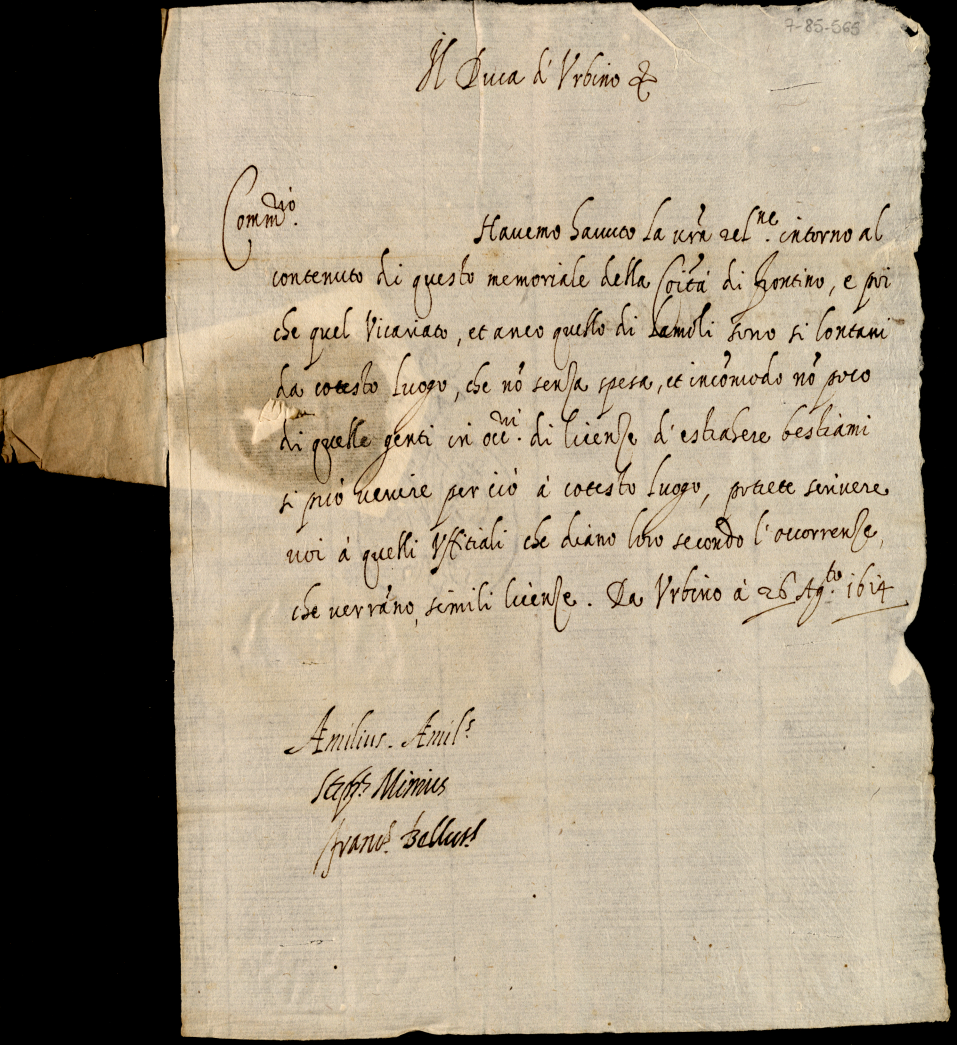 7-85-565
Il Duca d'Urbino &
Comm.rio
Havemo havuto la vrã rel.ne intorno al
contenuto di questo memoriale della Coĩtá di Frontino, e poi
che quel Vicariato, et anco quello di Lamoli sono si lontani
da cotesto luogo, che nõ senza spesa, et incõmodo nõ poco
di quelle genti in occ.ni di licenze d'estrahere bestiami
si può venire per ciò á cotesto luogo, potrete scrivere
voi á quelli Uffitiali che diano loro secondo l'occorrenze,
che verrãno, simili licenze. Da Urbino á 26 Ag.to 1614
Amilius. Amil.s
Steph.s Minius
Franc.s Bellus